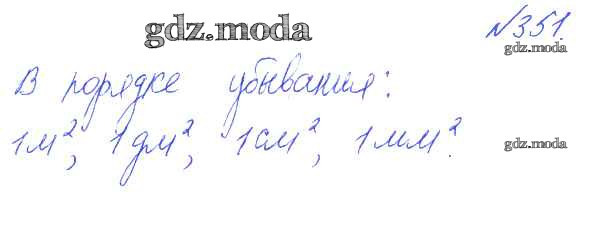 gdz.moda
№351.
gdz.moda
В порядке убывания:
1м², 1дм², 1см², 1мм².
gdz.moda